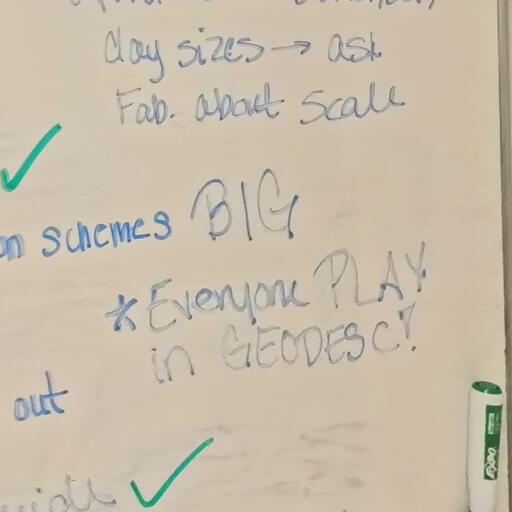 clay sizes → ask
Fab. about Scale
on schemes BIG
* Everyone PLAY
in GEODESC!
out